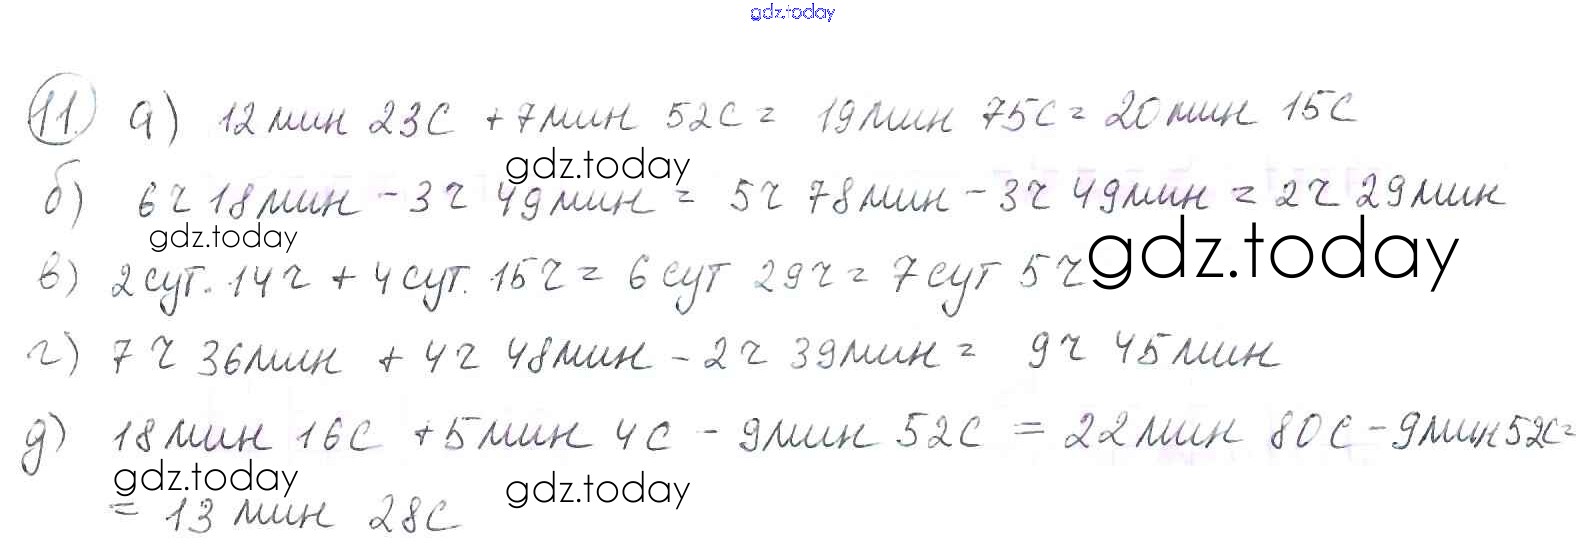 gdz.today
11. а) 12 мин 23с + 7 мин 52с = 19 мин 75с = 20 мин 15с
gdz.today
б) 6ч 18 мин - 3ч 49 мин = 5ч 78 мин - 3ч 49 мин = 2ч 29 мин
gdz.today
gdz.today
в) 2 сут. 14ч + 4 сут. 15ч = 6 сут 29ч = 7 сут 5ч
г) 7ч 36 мин + 4ч 48 мин - 2ч 39 мин = 9ч 45 мин
д) 18 мин 16с + 5 мин 4с - 9 мин 52с = 22 мин 80с - 9 мин 52с =
gdz.today
gdz.today
= 13 мин 28с